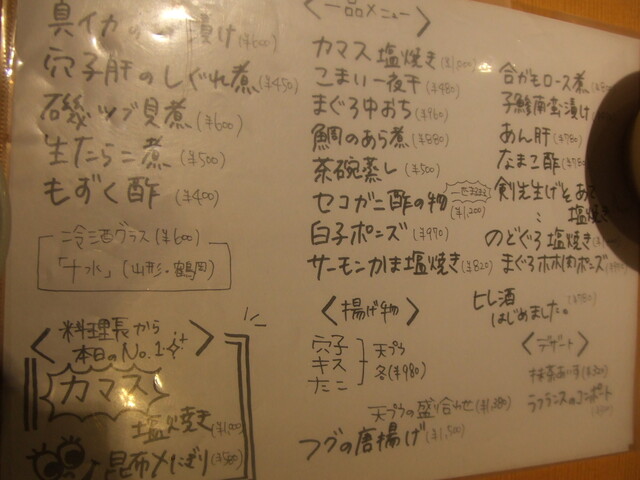 真イカの漬け (¥600)
穴子肝のしぐれ煮 (¥450)
磯ツブ貝煮 (¥600)
生たらこ煮 (¥500)
もずく酢 (¥400)
冷酒グラス (¥600)
「十水」(山形・鶴岡)
料理長から
本日のNo.1
カマス
塩焼き (¥1,000)
昆布〆にぎり (¥580)
〈一品メニュー〉
カマス塩焼き (¥1,000)
こまい一夜干 (¥480)
まぐろ中おち (¥960)
鯛のあら煮 (¥880)
茶碗蒸し (¥500)
セコガニ酢の物 (¥1,200)
白子ポンズ (¥990)
サーモンかま塩焼き (¥820)
〈揚げ物〉
穴子
キス
たこ
天ぷら
各 (¥980)
天ぷらの盛り合わせ (¥1,380)
フグの唐揚げ (¥1,500)
合がもロース煮
子鯵南蛮漬け
あん肝 (¥780)
なまこ酢 (¥780
剣先生げそ
塩焼き
のどぐろ塩焼き
まぐろホホ肉ポンズ
ヒレ酒 (¥780)
はじめました。
〈デザート〉
抹茶あいす (¥300)
ラフランスのコンポート